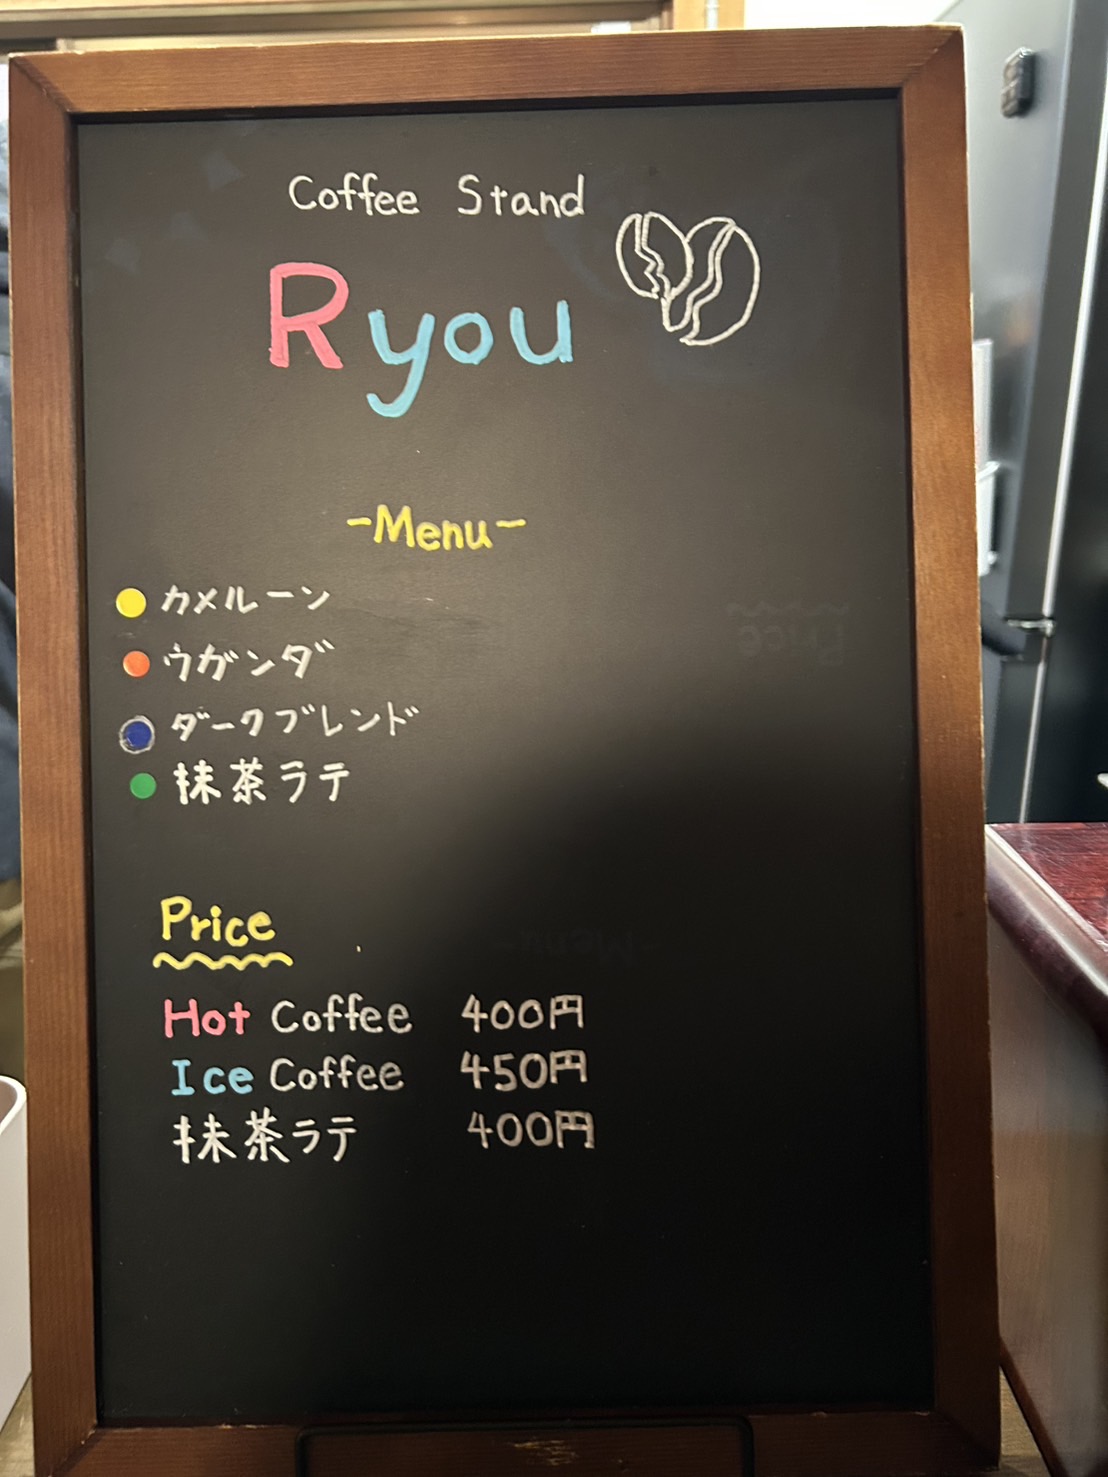 Coffee Stand
Ryou
-Menu-
カメルーン
ウガンダ
ダークブレンド
抹茶ラテ
Price
Hot Coffee 400円
Ice Coffee 450円
抹茶ラテ 400円
Price
-Menu-